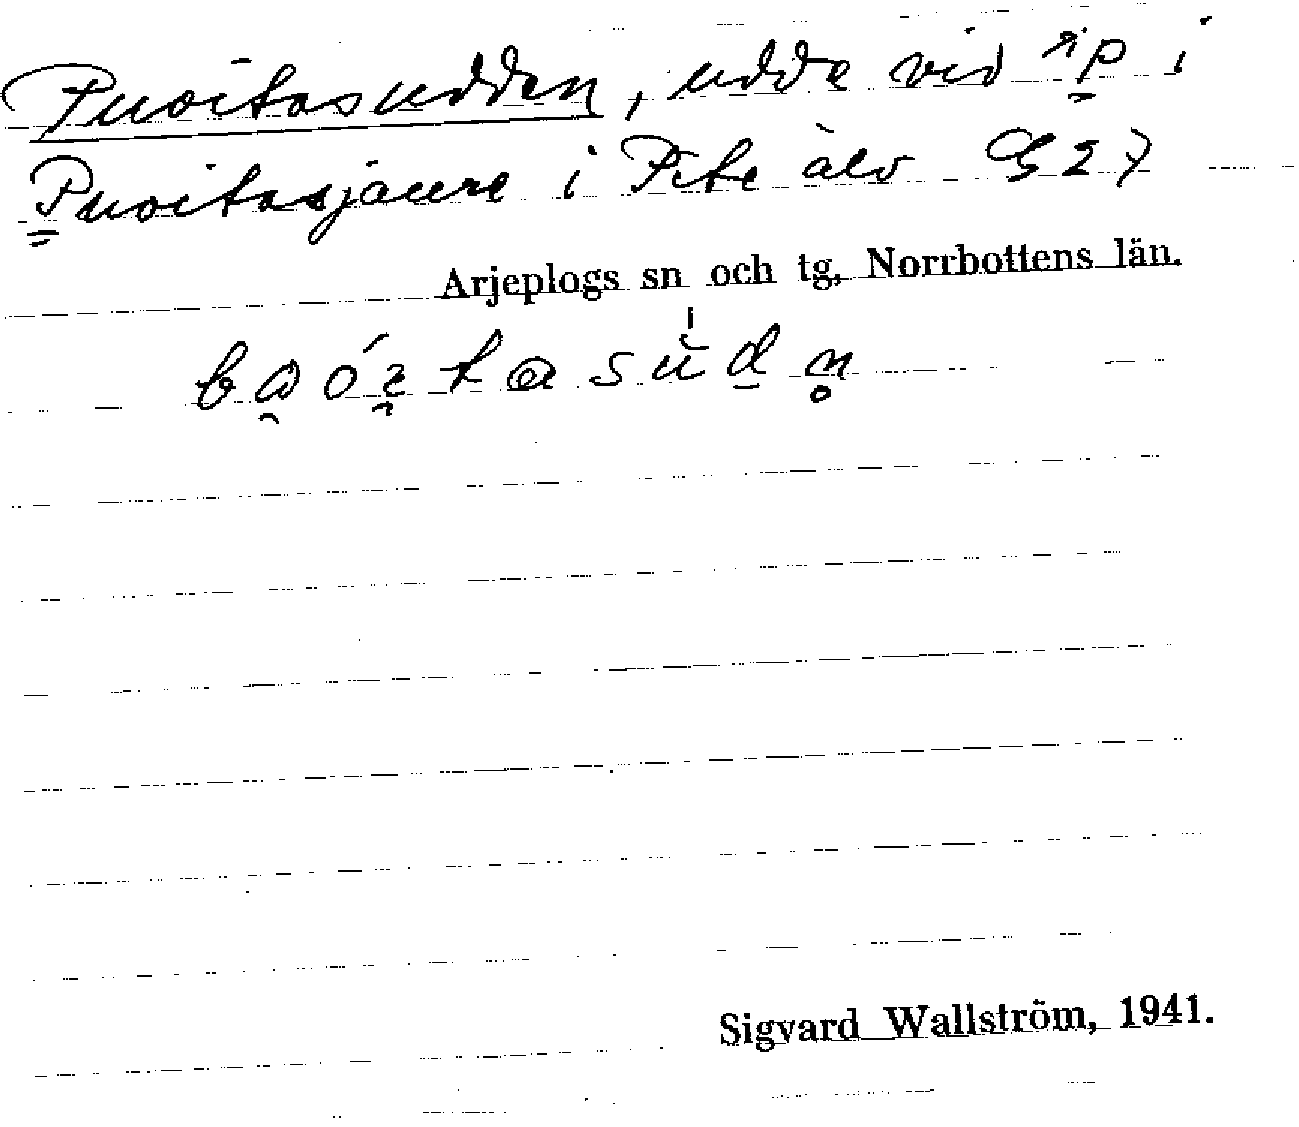 Puoitasudden, udde vid sjp i
Puoitasjaure i Pite älv G 27
Arjeplogs sn och tg, Norrbottens län.
Sigvard Wallström, 1941.